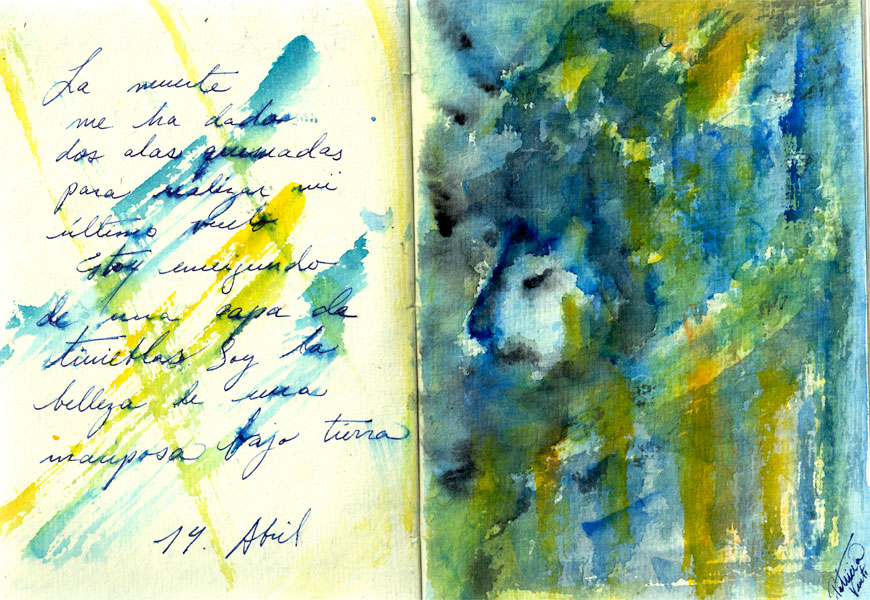 La muerte
me ha dado
dos alas quemadas
para realizar mi
último vuelo
Estoy emergiendo
de una capa de
tinieblas. Soy la
belleza de una
mariposa bajo tierra
14. Abril
Patricia
Venti